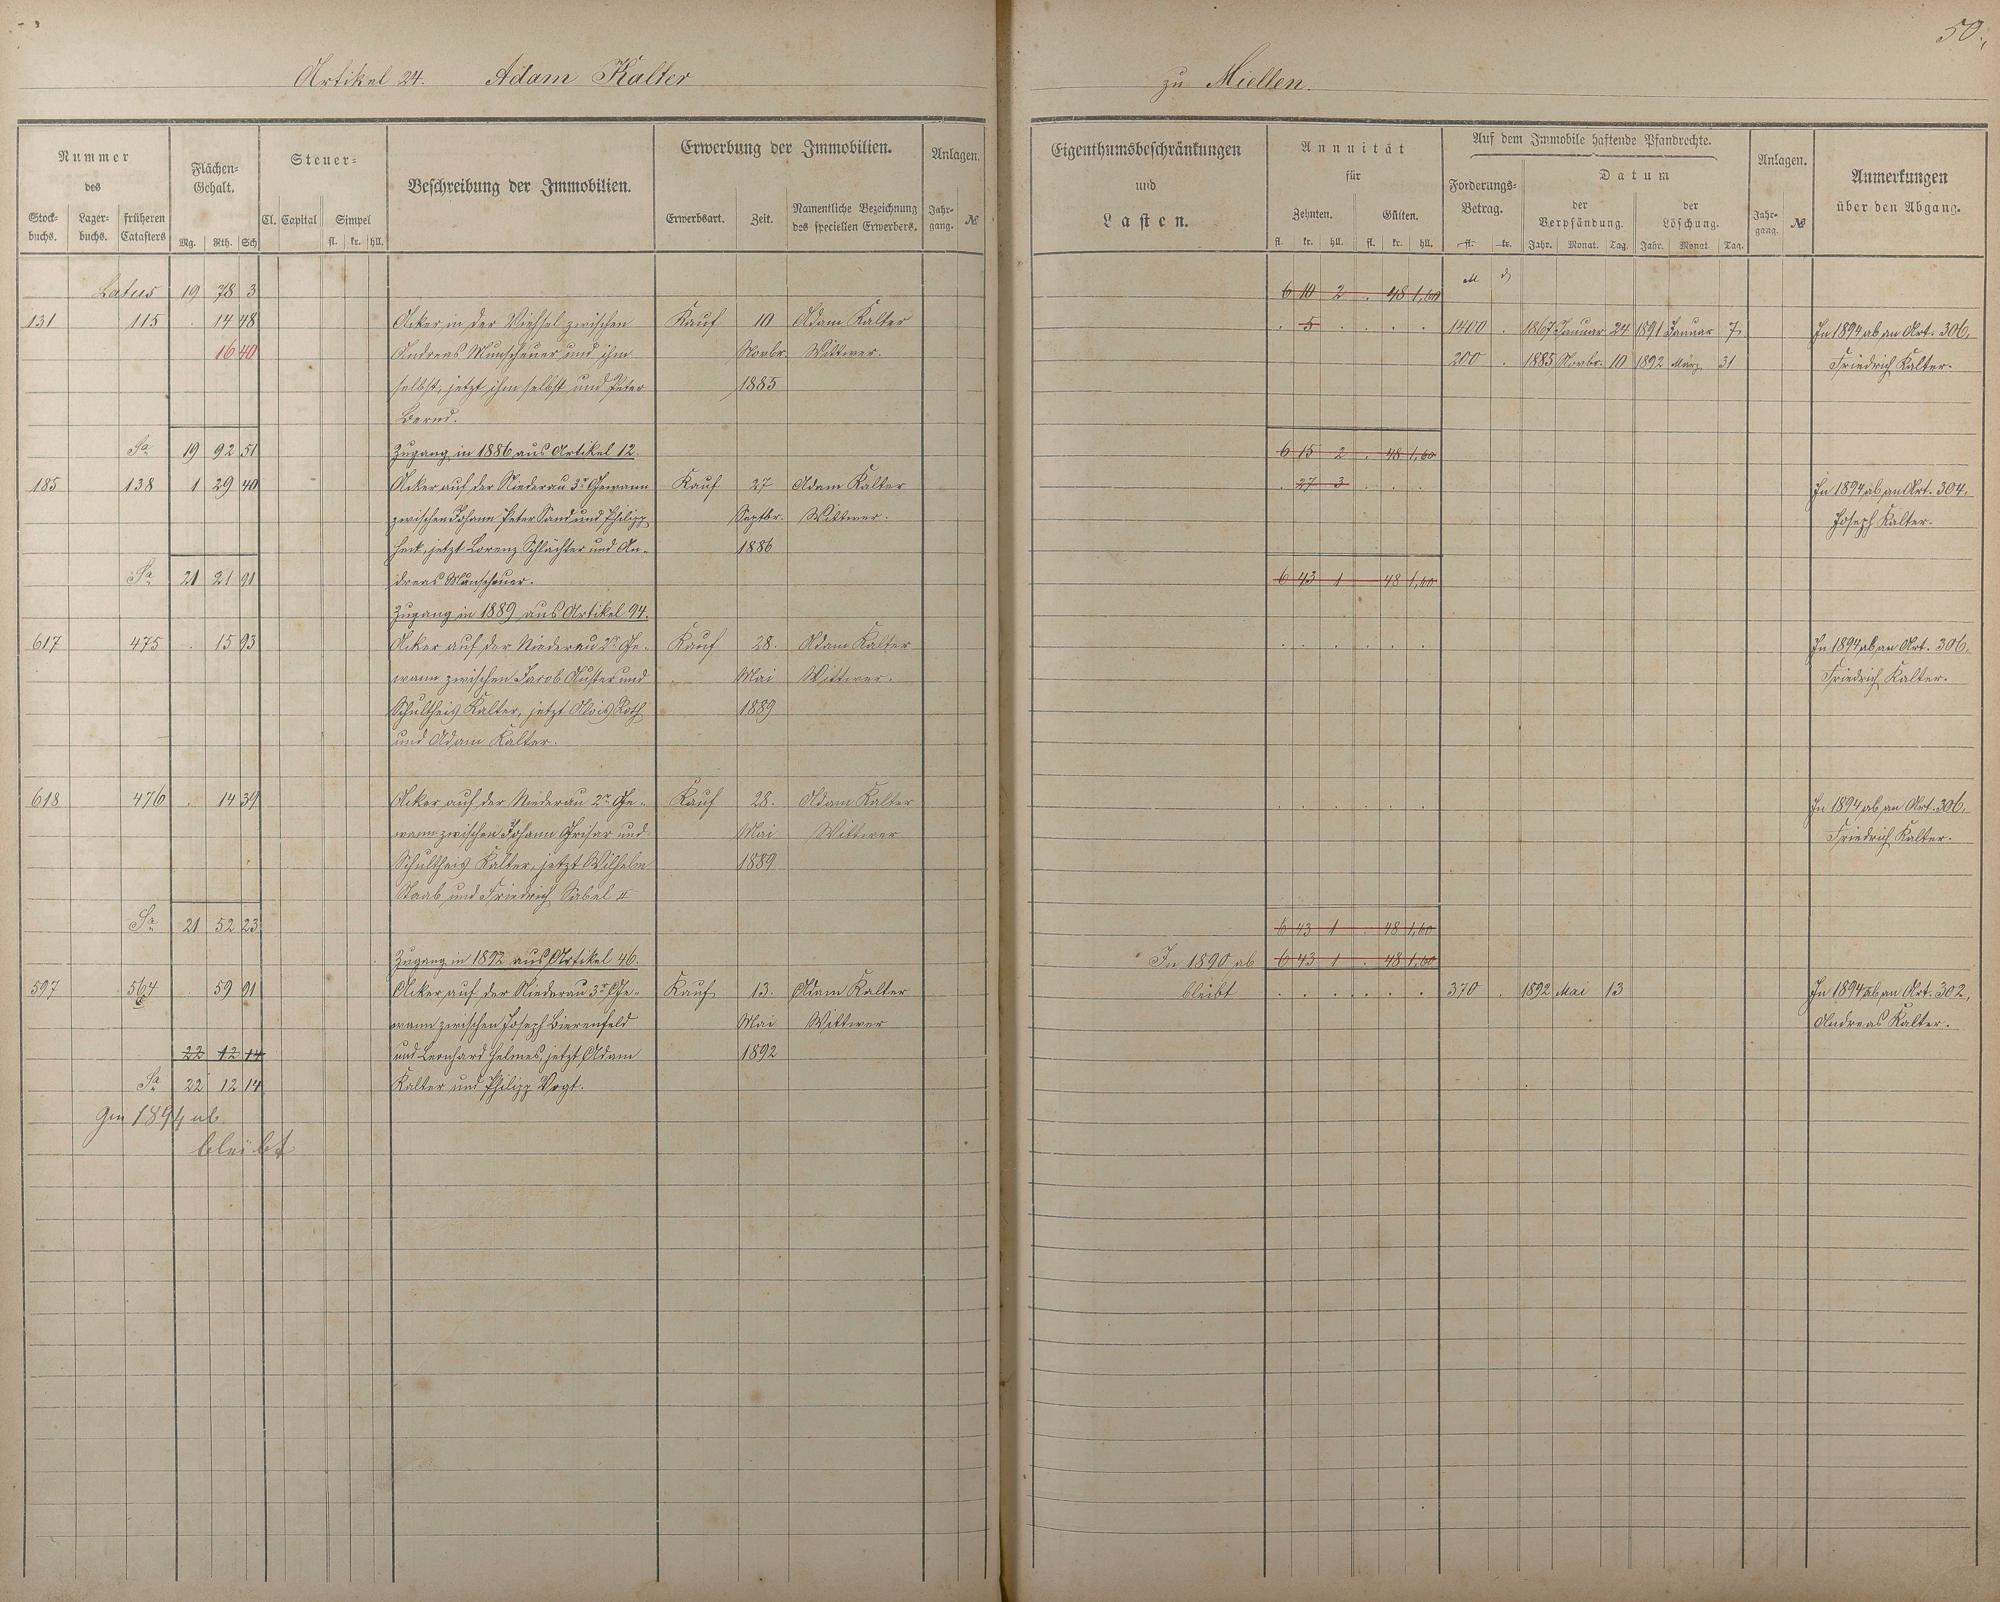 50.
Artikel 24. Adam Kalter
zu Miellen.
Nummer
des
Stock-
buchs.
Lager-
buchs.
früheren
Catasters
Flächen-
Gehalt.
Mg. Rth. Sch
Steuer-
Cl. Capital Simpel
fl. kr. hll.
Beschreibung der Immobilien.
Erwerbung der Immobilien.
Erwerbsart. Zeit.
Namentliche Bezeichnung
des speciellen Erwerbers.
Anlagen.
Jahr-
gang.
№
Latus 19 78 3
131 115 . 14 48 Acker in der Wiehsel zwischen Kauf 10 Adam Kalter
16 40 Andreas Munscheuer und ihm Novbr. Wittwer.
selbst, jetzt ihm selbst und Peter 1885
Bernd.
Sa 19 92 51 Zugang in 1886 aus Artikel 12.
185 138 1 29 40 Acker auf der Niederau 3r Gewann Kauf 27 Adam Kalter
zwischen Johann Peter Sand und Philipp Septbr. Wittwer.
Heck, jetzt Lorenz Schlächter und An- 1886
Sa 21 21 91 dreas Munscheuer.
Zugang in 1889 aus Artikel 94.
617 475 . 15 93 Acker auf der Niederau 2r Ge- Kauf 28. Adam Kalter
wann zwischen Jacob Auster und Mai Wittwer.
Schultheis Kalter, jetzt Alois Roth 1889
und Adam Kalter.
618 476 . 14 39 Acker auf der Niederau 2r Ge- Kauf 28. Adam Kalter
wann zwischen Johann Grisar und Mai Wittwer
Schultheis Kalter, jetzt Wilhelm 1889
Staab und Friedrich Sabel
Sa 21 52 23
Zugang in 1892 aus Artikel 46.
597 564 . 59 91 Acker auf der Niederau 3r Ge- Kauf 13. Adam Kalter
wann zwischen Joseph Bierenfeld Mai Wittwer
22 12 14 und Leonhard Helmes, jetzt Adam 1892
Sa 22 12 14 Kalter und Philipp Vogt.
Im 1894 ab
bleibt
Eigenthumsbeschränkungen
und
Lasten.
Annuität
für
Zehnten. Gülten.
fl. kr. hll. fl. kr. hll.
Auf dem Immobile haftende Pfandrechte.
Forderungs-
Betrag.
fl. kr.
Datum
der
Verpfändung.
Jahr. Monat. Tag.
der
Löschung.
Jahr. Monat Tag.
Anlagen.
Jahr-
gang.
№
Anmerkungen
über den Abgang.
M d
6 10 2 . 48 1,60
. 5 . . . . 1400 . 1867 Januar 24 1891 Januar 7 In 1894 ab an Art. 306,
200 . 1885 Novbr. 10 1892 März 31 Friedrich Kalter.
6 15 2 . 48 1,60
. 27 3 . . . In 1894 ab an Art. 304,
Joseph Kalter.
6 43 1 48 1,60
. . . . . . In 1894 ab an Art. 306,
Friedrich Kalter.
. . . . . . In 1894 ab an Art. 306,
Friedrich Kalter.
6 43 1 . 48 1,60
In 1890 ab 6 43 1 . 48 1,60
bleibt . . . . . . 370 . 1892 Mai 13 In 1894 ab an Art. 302,
Andreas Kalter.